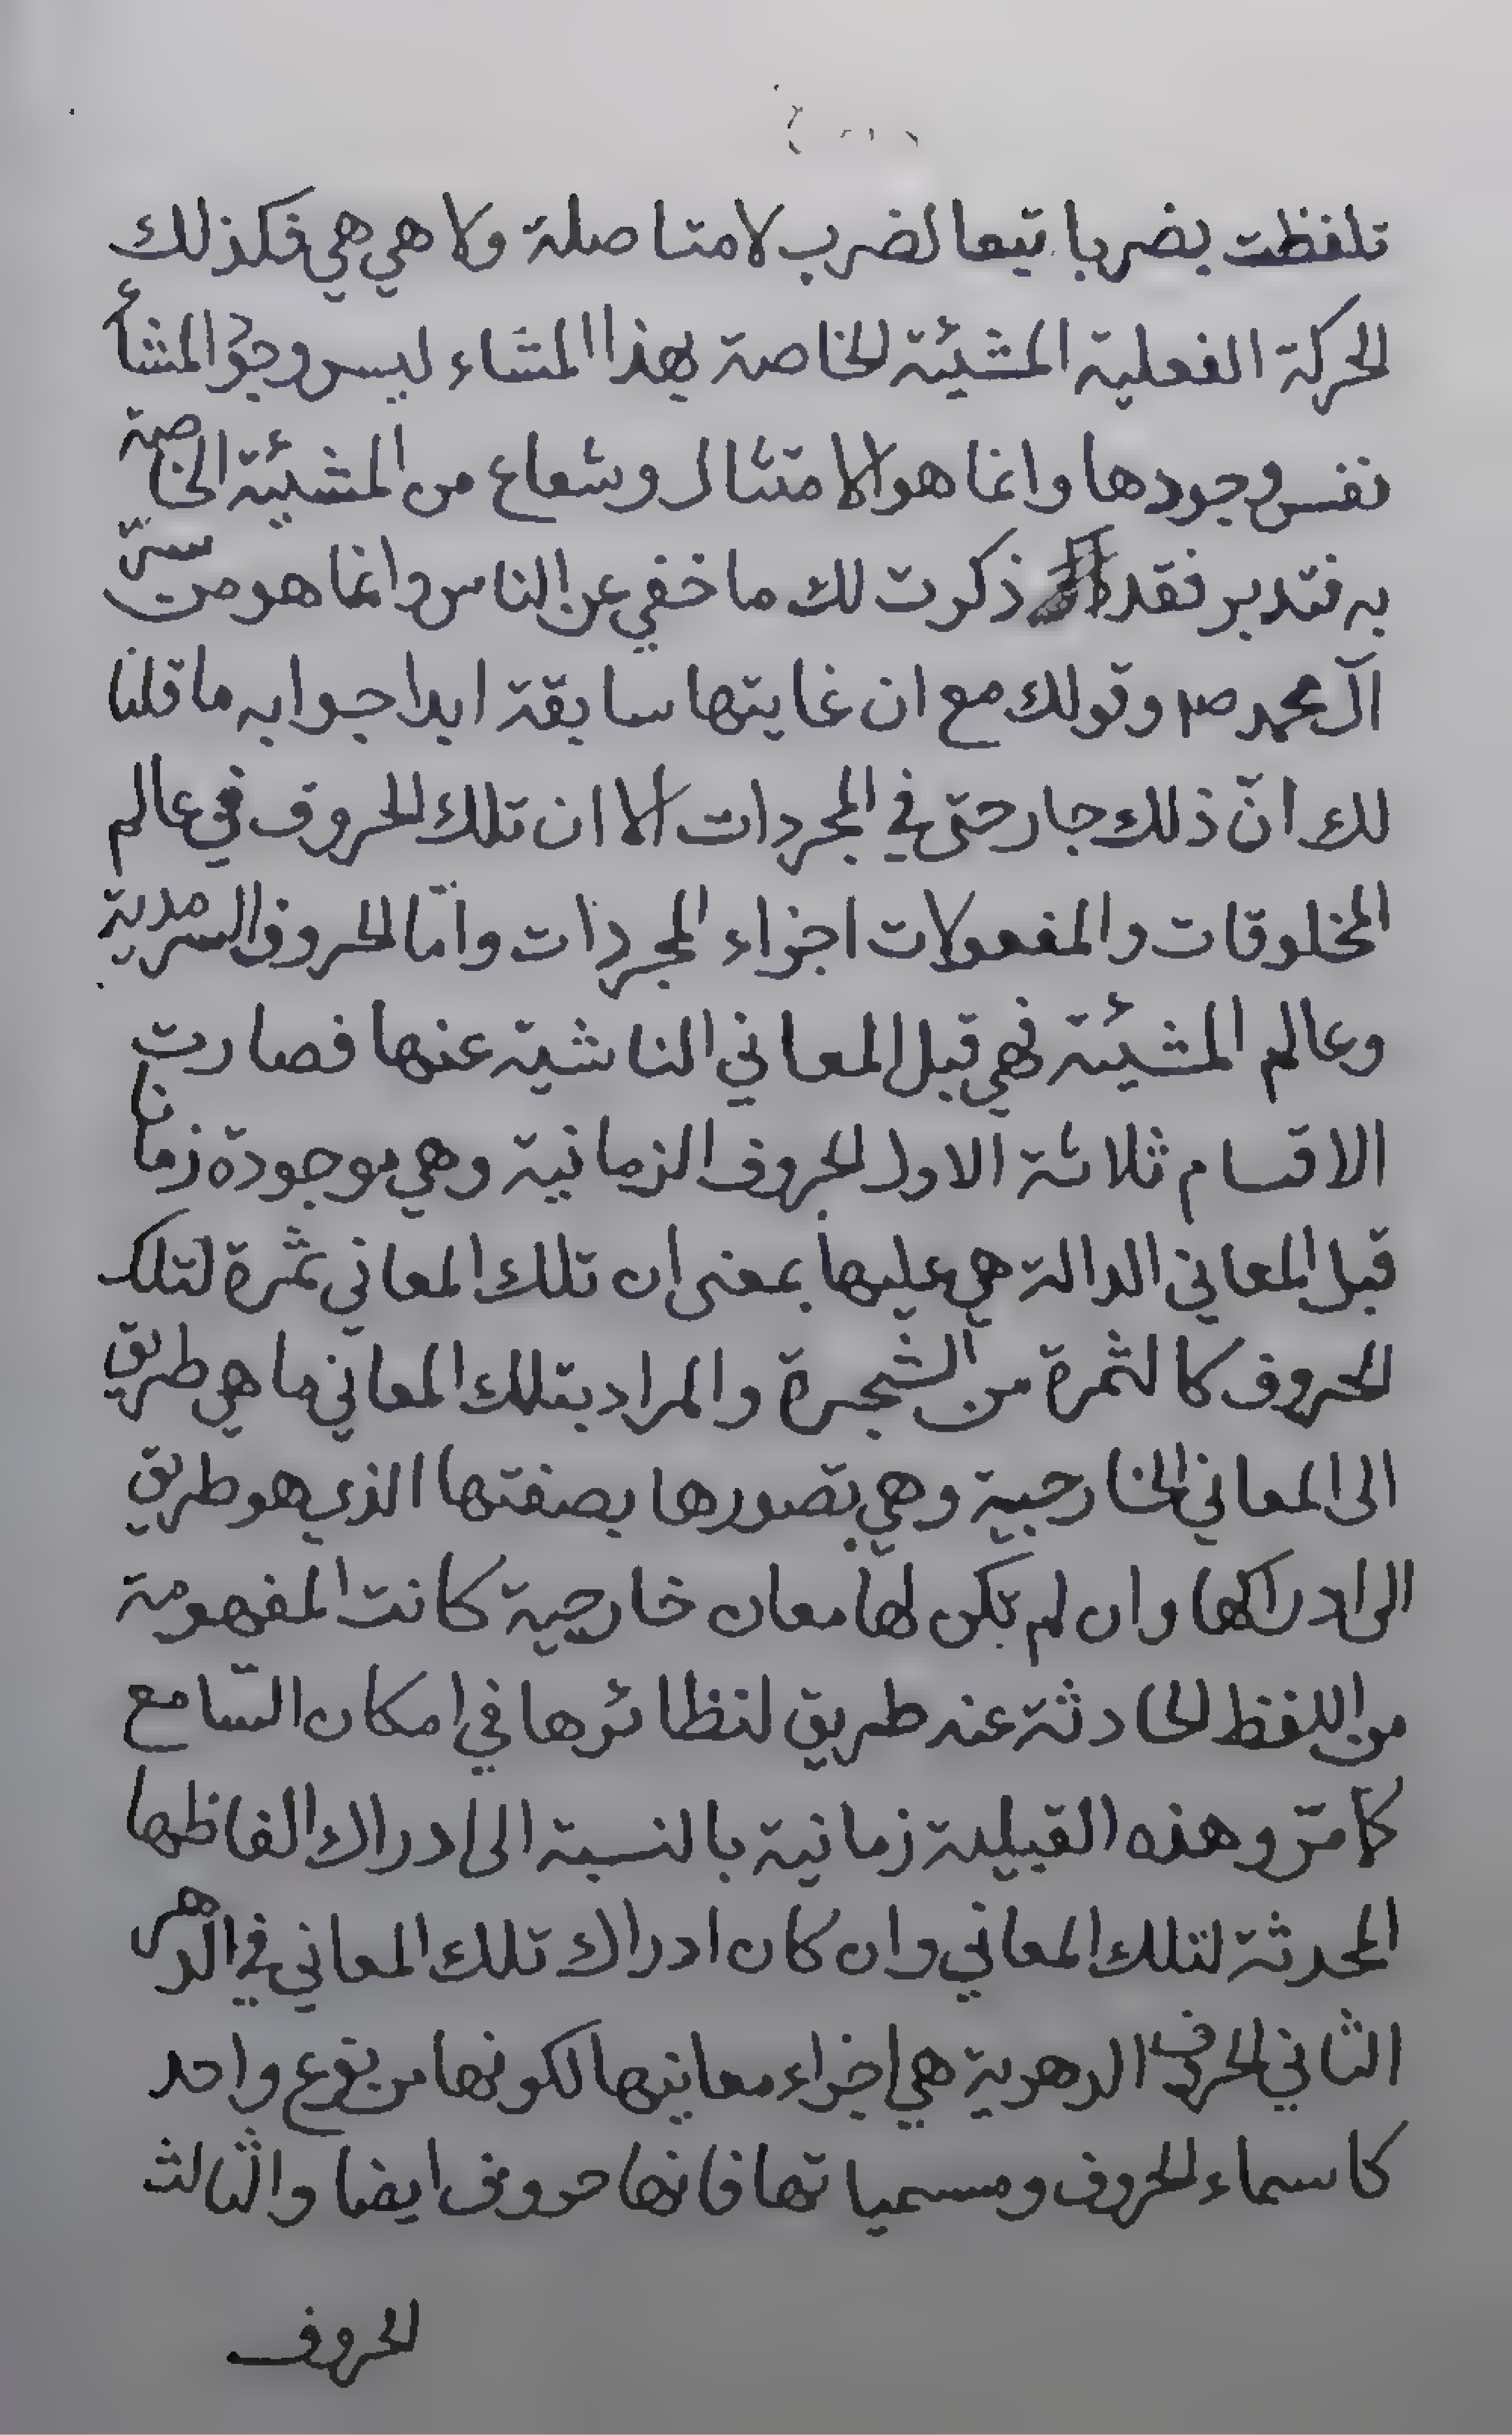 تلفظت بضربا تبعا لضرب لا متاصلة ولا هي هي فكذلك
الحركة الفعلية المشيئة الخاصة بهذا المشاء ليس وجود المشأ
نفس وجودها وانما هو الامتثال وشعاع من المشيئة الخاصة
به فتدبر فقد ذكرت لك ما خفي عن الناس وانما هو من سرّ
آل محمد ص وقولك مع ان غايتها سابقة ابدا جوابه ما قلنا
لك انّ ذلك جار حتى في المجردات الا ان تلك الحروف في عالم
المخلوقات والمفعولات اجزاء المجردات وامّا الحروف السرمدية
وعالم المشيئة فهي قبل المعاني الناشية عنها فصارت
الاقسام ثلاثة الاول الحروف الزمانية وهي موجودة زمانا
قبل المعاني الدالة هي عليها بمعنى ان تلك المعاني ثمرة لتلك
الحروف كالثمرة من الشجرة والمراد بتلك المعاني ما هي طريق
الى المعاني الخارجية وهي تصورها بصفتها الذي هو طريق
الى ادراكها وان لم تكن لها معان خارجية كانت المفهومة
من اللفظ الحادثة عنه طريق لنظائرها في امكان السّامع
كما مرّ وهذه القبيلة زمانية بالنسبة الى ادراك الفاظها
المحدثة لتلك المعاني وان كان ادراك تلك المعاني في الدهر
الثاني الحروف الدهرية هي اجزاء معانيها لكونها من نوع واحد
كاسماء الحروف ومسمياتها فانها حروف ايضا والثالث
الحروف